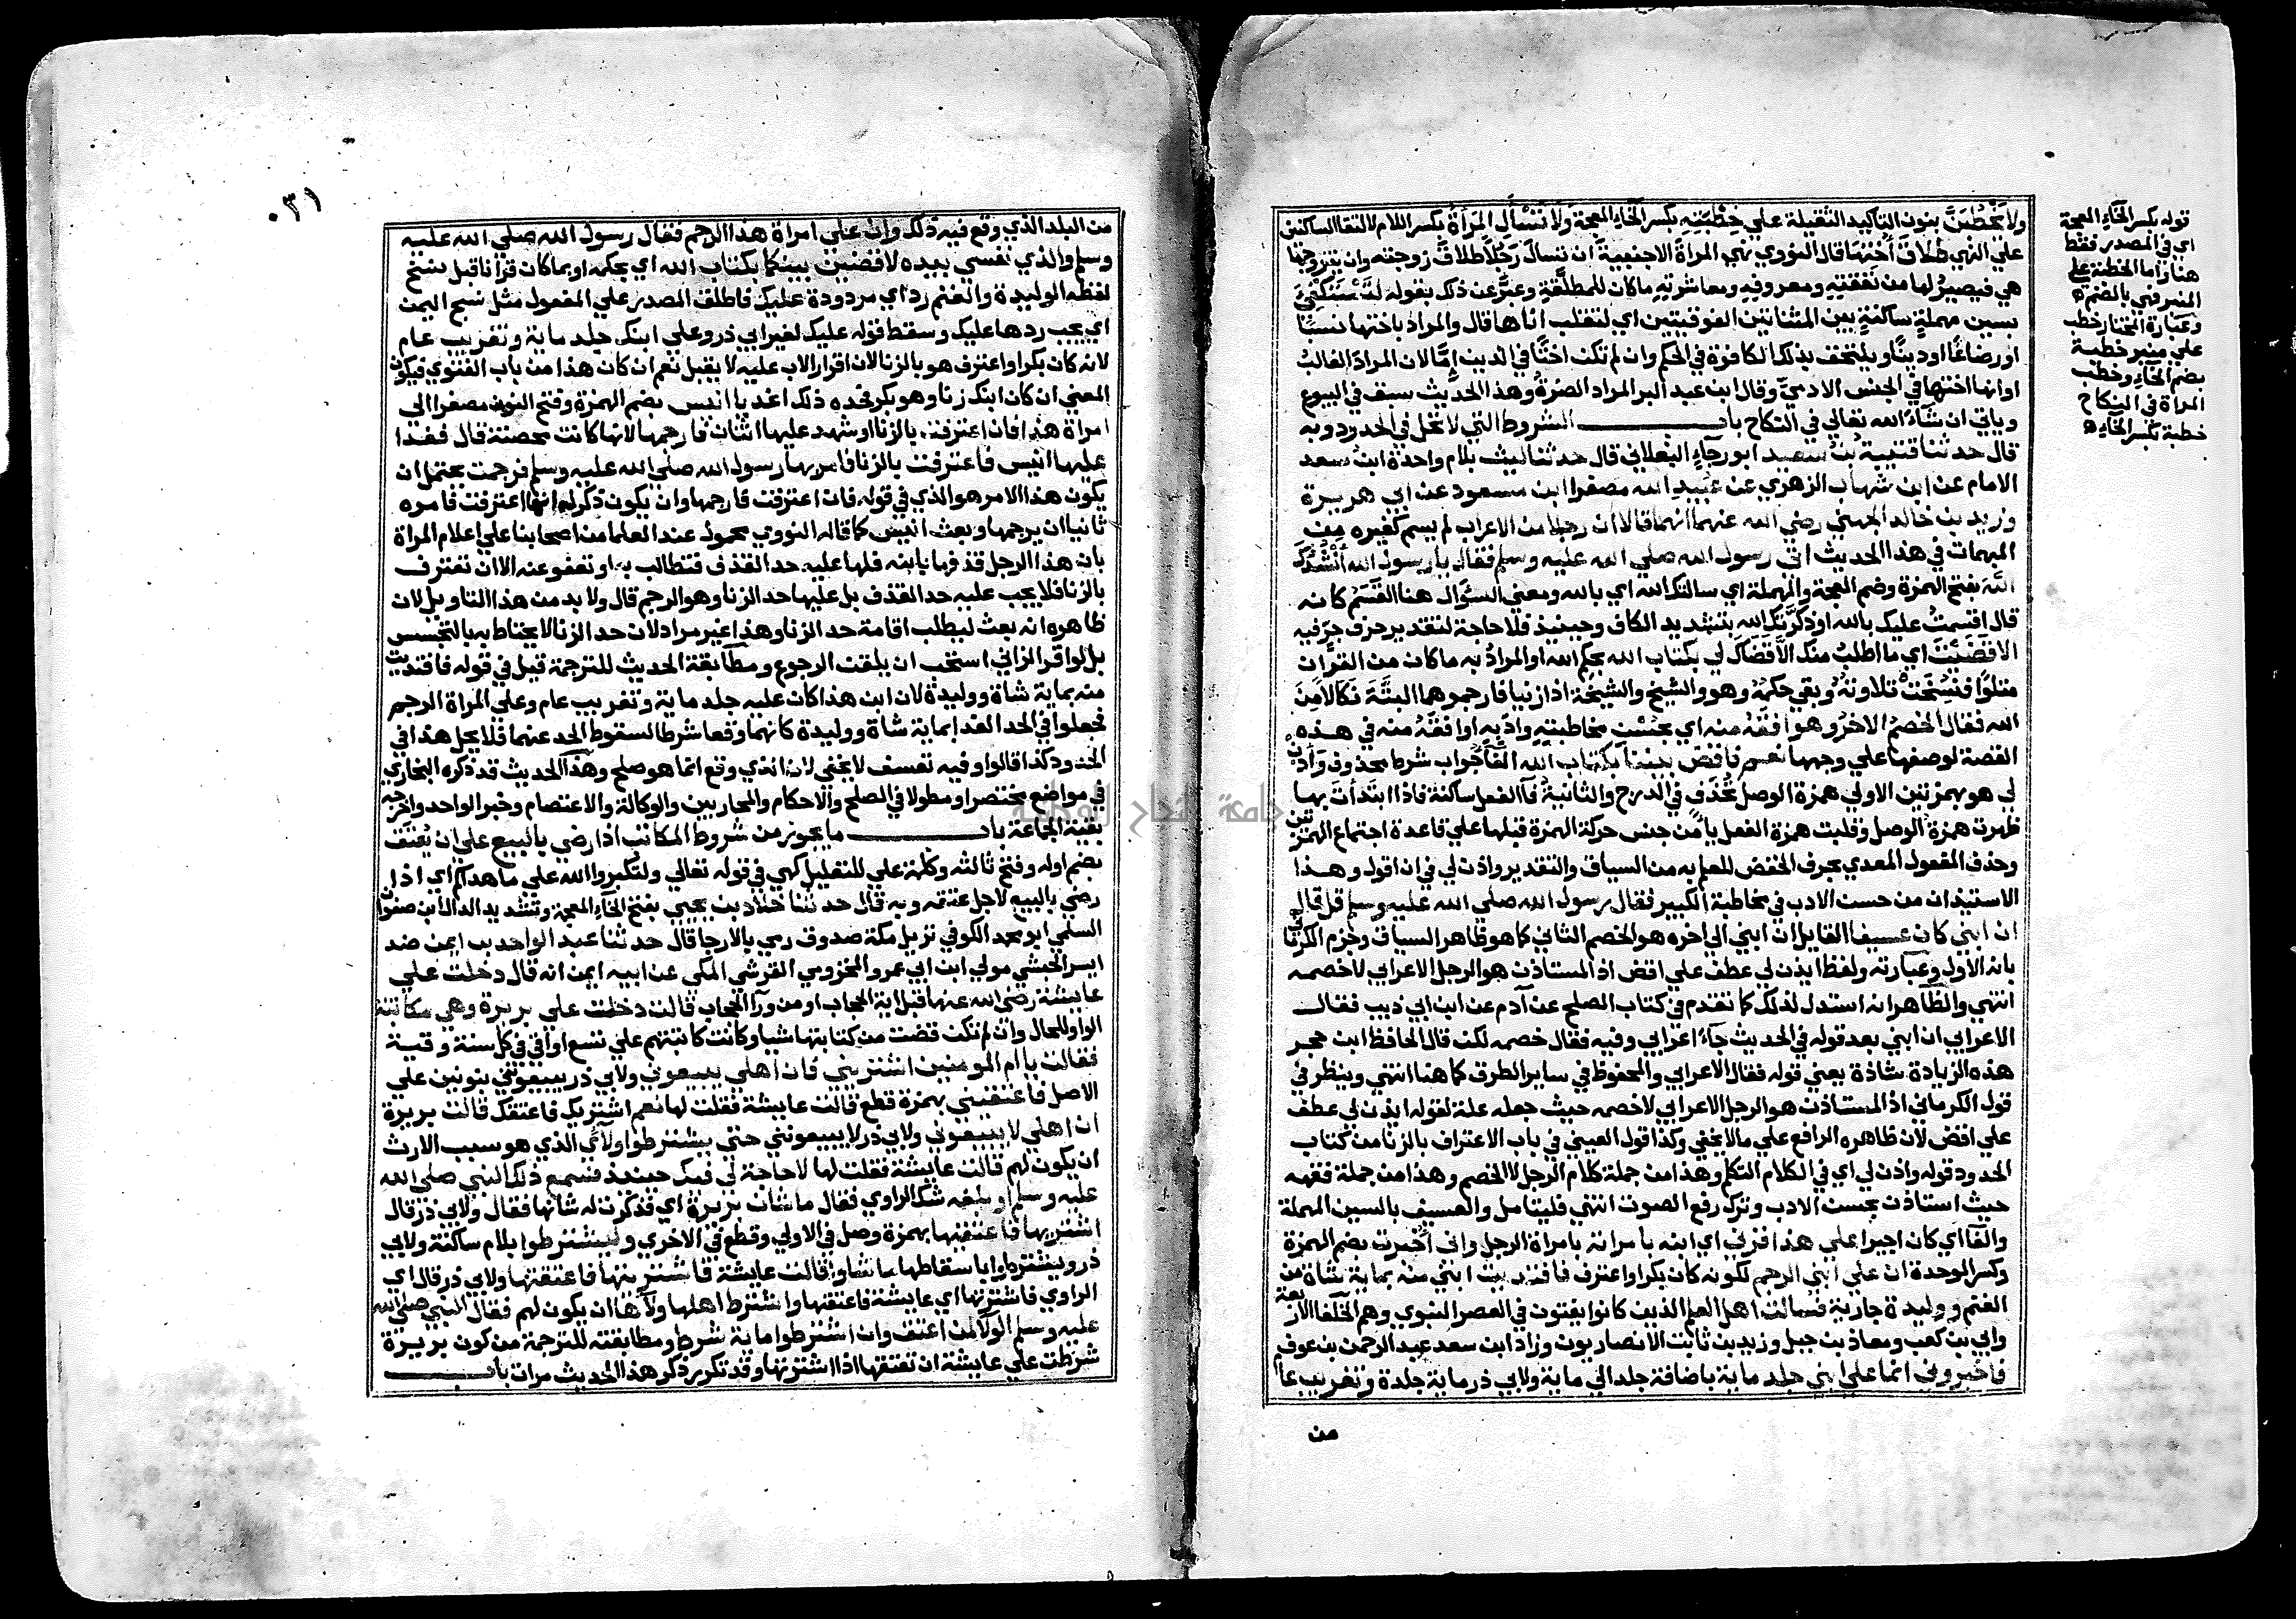 ولا يخطبن بنون التاكيد الثقيلة علي خطبته بكسر الخاء المعجمة ولا تسأل المرأة بكسر اللام لالتقا الساكنين
علي النهي طلاق أختها قال النووي نهي المراة الاجنبية ان تسال رجلا طلاق زوجته وان يتزوجها
هي فيصير لها من نفقته ومعروفه ومعاشرته ما كان للمطلقة وعبر عن ذلك بقوله لتستكفئ
بسين مهملة ساكنة بين المثناتين الفوقيتين اي لتقلب اناها قال والمراد باختها نسبا
او رضاعا او دينا ويلتحق بذلك الكافرة في الحكم وان لم تكن اختا في الدين اما لان المراد الغالب
او انها اختها في الجنس الادمي وقال ابن عبد البر المراد الضرة وهذا الحديث سبق في البيوع
وياتي ان شاء الله تعالي في النكاح باب الشروط التي لا تحل في الحدود وبه
قال حدثنا قتيبة بن سعيد ابو رجاء البغلاني قال حدثنا ليث بلام واحدة ابن سعد
الامام عن ابن شهاب الزهري عن عبيد الله مصغرا ابن مسعود عن ابي هريرة
وزيد بن خالد الجهني رضي الله عنهما انهما قالا ان رجلا من الاعراب لم يسم كغيره من
المبهمات في هذا الحديث اتي رسول الله صلي الله عليه وسلم فقال يا رسول الله أنشدك
الله بفتح الهمزة وضم المعجمة والمهملة اي سالتك الله اي بالله ومعني السؤال هنا القسم كانه
قال اقسمت عليك بالله او ذكرتك الله بتشديد الكاف وحينيذ فلا حاجة لتقدير حرف جر فيه
الا قضيت اي ما اطلب منك الا قضاك لي بكتاب الله بحكم الله او المراد به ما كان من القرآن
متلوا فنسخت تلاوته وبقي حكمه وهو والشيخ والشيخة اذا زنيا فارجموهما البتة نكالا من
الله فقال الخصم الاخر وهو افقه منه اي بحسن مخاطبته وادبه او افقه منه في هذه
القصة لوصفها علي وجهها نعم فاقض بيننا بكتاب الله الفا جواب شرط محذوف وأذن
لي هو بهمزتين الاولي همزة الوصل تحذف في الدرج والثانية فا الفعل ساكنة فاذا ابتدأت بها
ظهرت همزة الوصل وقلبت همزة الفعل يا من جنس حركة الهمزة قبلها علي قاعدة اجتماع الهمزتين
وحذف المفعول المعدي بحرف الخفض للعلم به من السياق والتقدير واذن لي في ان اقول وهذا
الاستيذان من حسن الادب في مخاطبة الكبير فقال رسول الله صلي الله عليه وسلم قل قال
ان ابني كان عسيفا القايل ان ابني الي اخره هو الخصم الثاني كما هو ظاهر السياق وجزم الكرماني
بانه الاول وعبارته ولفظ ايذن لي عطف علي اقض اذ المستاذن هو الرجل الاعرابي لا خصمه
انتهي والظاهر انه استدل لذلك كما تقدم في كتاب الصلح عن آدم عن ابن ابي ذيب فقال
الاعرابي ان ابني بعد قوله في الحديث جاء اعرابي وفيه فقال خصمه لكن قال الحافظ ابن حجر
هذه الزيادة شاذة يعني قوله فقال الاعرابي والمحفوظ في ساير الطرق كما هنا انتهي وينظر في
قول الكرماني اذ المستاذن هو الرجل الاعرابي لا خصمه حيث جعله علة لقوله ايذن لي عطف
علي اقض لان ظاهره الرافع علي ما لا يخفي وكذا قول العيني في باب الاعتراف بالزنا من كتاب
الحدود قوله واذن لي اي في الكلام التكلم وهذا من جملة كلام الرجل لا الخصم وهذا من جملة فقهه
حيث استاذن بحسن الادب وترك رفع الصوت انتهي فليتامل والعسيف بالسين المهملة
والفا اي كان اجيرا علي هذا فزني اي ابنه بامراته بامراة الرجل واني أخبرت بضم الهمزة
وكسر الموحدة ان علي ابني الرجم لكونه كان بكرا واعترف فافتديت ابني منه بماية شاة من
الغنم ووليدة جارية فسالت اهل العلم الذين كانوا يفتون في العصر النبوي وهم الخلفا الاربعة
وابي بن كعب ومعاذ بن جبل وزيد بن ثابت الانصاريون وزاد ابن سعد عبد الرحمن بن عوف
فاخبروني انما علي ابني جلد ماية باضافة جلد الي ماية ولابي ذر ماية جلدة وتغريب عام
من
قوله بكسر الخاء المعجمة
اي في المصدر فقط
هنا واما الخطبة علي
المنبر فهي بالضم
وعبارة المختار خطب
علي منبر خطبة
بضم الخاء وخطب
المراة في النكاح
خطبة بكسر الخاء
٠٣١
من البلد الذي وقع فيه ذلك وان علي امراة هذا الرجم فقال رسول الله صلي الله عليه
وسلم والذي نفسي بيده لاقضين بينكما بكتاب الله اي بحكمه او بما كان قرانا قبل نسخ
لفظه الوليدة والغنم رد اي مردودة عليك فاطلق المصدر علي المفعول مثل نسج اليمن
اي يجب ردها عليك وسقط قوله عليك لغير ابي ذر وعلي ابنك جلد ماية وتغريب عام
لانه كان بكرا واعترف هو بالزنا لان اقرار الاب عليه لا يقبل نعم ان كان هذا من باب الفتوي فيكون
المعني ان كان ابنك زنا وهو بكر فحده ذلك اغد يا انيس بضم الهمزة وفتح النون مصغرا الي
امراة هذا فان اعترفت بالزنا او شهد عليها اثنان فارجمها لانها كانت محصنة قال فغدا
عليها انيس فاعترفت بالزنا فامر بها رسول الله صلي الله عليه وسلم فرجمت يحتمل ان
يكون هذا الامر هو الذي في قوله فان اعترفت فارجمها وان يكون ذكر له انها اعترفت فامره
ثانيا ان يرجمها وبعث انيس كما قاله النووي محمول عند العلما من اصحابنا علي اعلام المراة
بان هذا الرجل قذفها بابنه فلها عليه حد القذف فتطالب به او تعفو عنه الا ان تعترف
بالزنا فلا يجب عليه حد القذف بل عليها حد الزنا وهو الرجم قال ولا بد من هذا التاويل لان
ظاهره انه بعث ليطلب اقامة حد الزنا وهذا غير مراد لان حد الزنا لا يحتاط به بالتجسس
بل لو اقر الزاني استحب ان يلقن الرجوع ومطابقة الحديث للترجمة قيل في قوله فافتديت
منه بماية شاة ووليدة لان ابن هذا كان عليه جلد ماية وتغريب عام وعلي المراة الرجم
فجعلوا في الحد الفدا بماية شاة ووليدة كانهما وقعا شرطا لسقوط الحد عنهما فلا يحل هذا في
الحدود كذا قالوا وفيه تعسف لا يخفي لان الذي وقع انما هو صلح وهذا الحديث قد ذكره البخاري
في مواضع مختصرا ومطولا في الصلح والاحكام والمحاربين والوكالة والاعتصام وخبر الواحد واخرجه
بقية الجماعة باب ما يجوز من شروط المكاتب اذا رضي بالبيع علي ان يعتق
بضم اوله وفتح ثالثه وكلمة علي للتعليل كهي في قوله تعالي ولتكبروا الله علي ما هداكم اي اذا
رضي بالبيع لاجل عتقه وبه قال حدثنا خلاد بن يحيي بفتح الخاء المعجمة وتشديد الدال ابن صفوان
السلمي ابو محمد الكوفي نزيل مكة صدوق رمي بالارجا قال حدثنا عبد الواحد بن ايمن ضد
ايسر الحبشي مولي ابن ابي عمرو المخزومي القرشي المكي عن ابيه ايمن انه قال دخلت علي
عايشة رضي الله عنها قبل اية الحجاب او من ورا الحجاب قالت دخلت علي بريرة وهي مكاتبة
الواو للحال وان لم تكن قضت من كتابتها شيا وكانت كاتبتهم علي تسع اواقي في كل سنة وقية
فقالت يا ام المومنين اشتريني فان اهلي يبيعوني ولابي ذر يبيعونني بنونين علي
الاصل فاعتقيني بهمزة قطع قالت عايشة فقلت لها نعم اشتريك فاعتقك قالت بريرة
ان اهلي لا يبيعوني ولابي ذر لا يبيعونني حتي يشترطوا ولآئي الذي هو سبب الارث
ان يكون لهم قالت عايشة فقلت لها لا حاجة لي فيك حينيذ فسمع ذلك النبي صلي الله
عليه وسلم او بلغه شك الراوي فقال ما شان بريرة اي فذكرت له شانها فقال ولابي ذر قال
اشتريها فاعتقيها بهمزة وصل في الاولي وقطع في الاخري وليشترطوا بلام ساكنة ولابي
ذر ويشترطوا باسقاطها ما شاوا قالت عايشة فاشتريتها فاعتقتها ولابي ذر قال اي
الراوي فاشترتها اي عايشة فاعتقتها واشترط اهلها ولآها ان يكون لهم فقال النبي صلي الله
عليه وسلم الولا لمن اعتق وان اشترطوا ماية شرط ومطابقته للترجمة من كون بريرة
شرطت علي عايشة ان تعتقها اذا اشترتها وقد تكرر ذكر هذا الحديث مرات باب